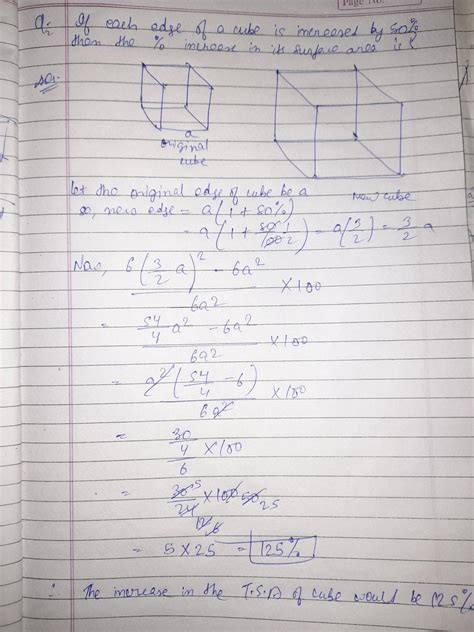 Page No.
Q. If each edge of a cube is increased by 50%
then the % increase in its surface area is?
Sol.
a
original
cube
New cube
let the original edge of cube be a
so, new edge = a(1 + 50%)
= a(1 + 50 1/100 2) = a(3/2) = 3/2 a
Now, 6(3/2 a)² - 6a² / 6a² × 100
= 54/4 a² - 6a² / 6a² × 100
= a²(54/4 - 6) / 6a² × 100
= 30/4 / 6 × 100
= 30 5/24 12 6 × 100 50 25
= 5 × 25 = 125%
∴ The increase in the T.S.A of cube would be 125%